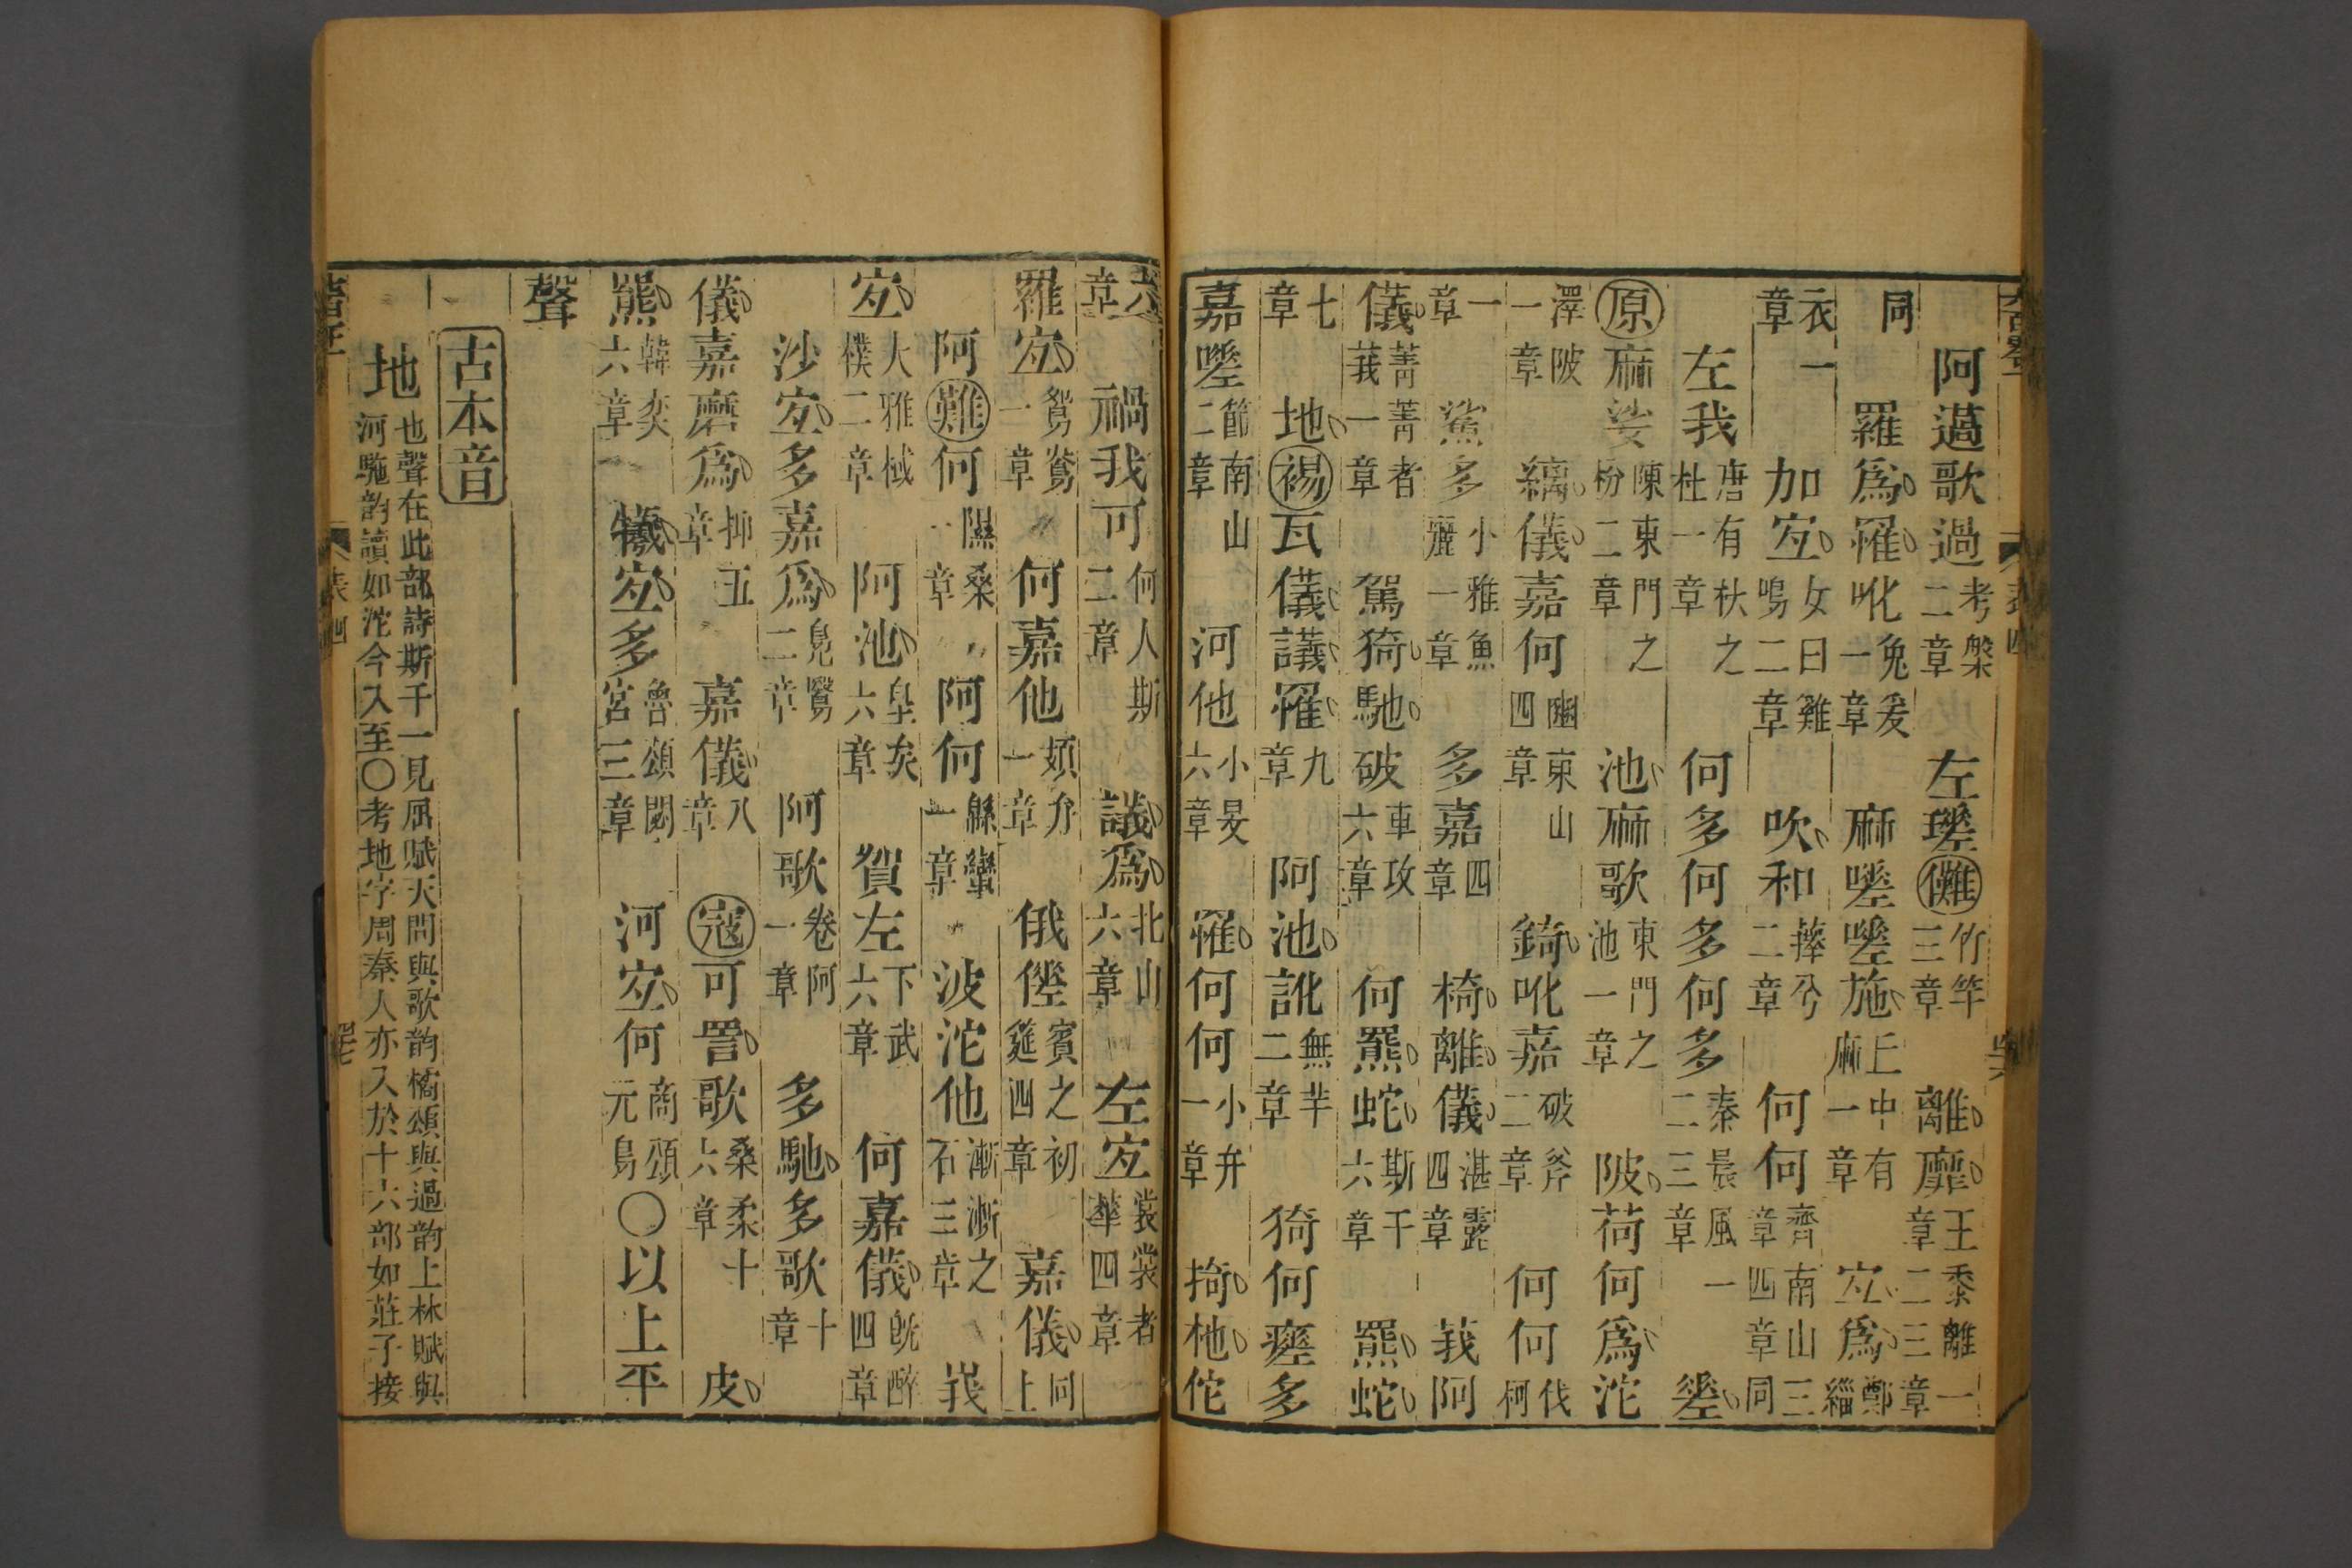 阿薖歌過考槃二章 左瑳儺竹竿三章 離靡王黍離一二三章
同 羅爲罹吪兔爰一章 麻嗟嗟施丘中有麻一章 宐爲鄭緇
衣一章 加宐女曰雞鳴二章 吹和蘀兮二章 何何齊南山三四章同
左我唐有杕之杜一章 何多何多何多秦晨風一二三章 差
原麻娑陳東門之枌二章 池麻歌東門之池一章 陂荷何爲沱
澤陂一章 縭儀嘉何豳東山四章 錡吪嘉破斧二章 何何伐柯
一章 鯊多小雅魚麗一章 多嘉四章 椅離儀湛露四章 莪阿
儀菁菁者莪一章 駕猗馳破車攻六章 何羆蛇斯干六章 羆蛇
七章 地裼瓦儀議罹九章 阿池訛無羊二章 猗何瘥多
嘉嗟節南山二章 河他小旻六章 罹何何小弁一章 掎杝佗
六章 禍我可何人斯二章 議爲北山六章 左宐裳裳者華四章
羅宐鴛鴦一章 何嘉他頍弁一章 俄傞賓之初筵四章 嘉儀同上
阿難何隰桑一章 阿何緜蠻一章 波沱他漸漸之石三章 峩
宐大雅棫樸二章 阿池皇矣六章 賀左下武六章 何嘉儀旣醉四章
沙宐多嘉爲鳧鷖二章 阿歌卷阿一章 多馳多歌十章
儀嘉磨爲抑五章 嘉儀八章 寇可詈歌桑柔十六章 皮
羆韓奕六章 犧宐多魯頌閟宮三章 河宐何商頌元鳥○以上平
聲
古本音
地也聲在此部詩斯干一見屈賦天問與歌韵橘頌與過韵上林賦與河駞韵讀如沱今入至○考地字周秦人亦入於十六部如莊子接